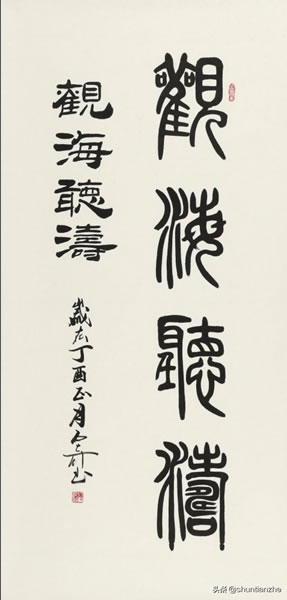 觀海聽濤
觀海聽濤
歲在丁酉正月
头条 @shuntianzhe